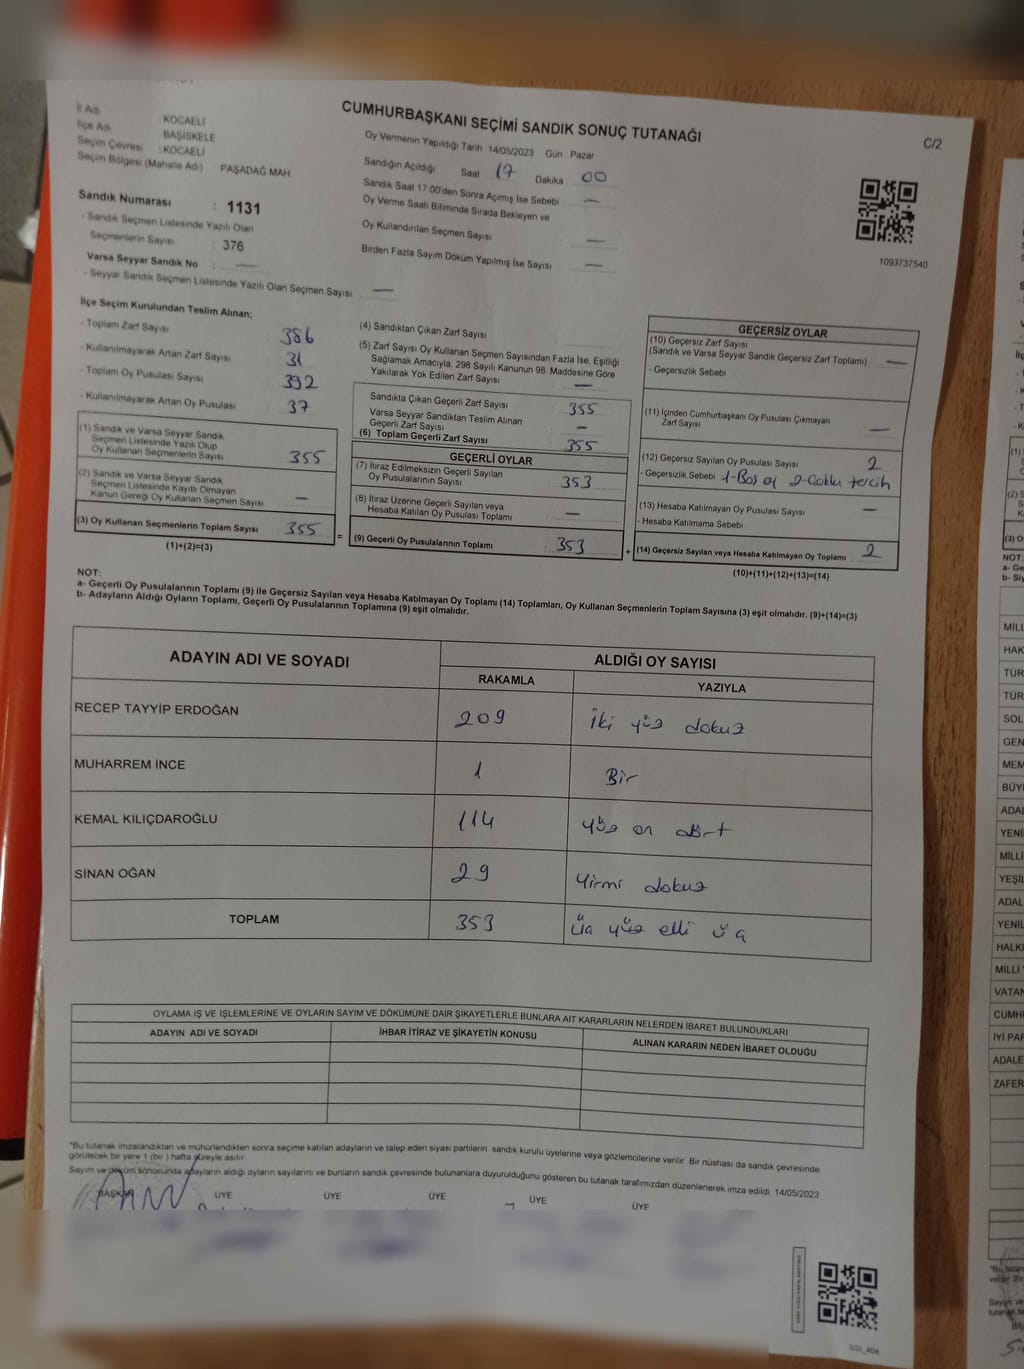 CUMHURBAŞKANI SEÇİMİ SANDIK SONUÇ TUTANAĞI
C/2
İl Adı KOCAELİ
İlçe Adı BAŞİSKELE
Seçim Çevresi : KOCAELİ
Seçim Bölgesi (Mahalle Adı) PAŞADAĞ MAH.
Sandık Numarası : 1131
- Sandık Seçmen Listesinde Yazılı Olan
Seçmenlerin Sayısı : 376
Varsa Seyyar Sandık No : —
- Seyyar Sandık Seçmen Listesinde Yazılı Olan Seçmen Sayısı : —
Oy Vermenin Yapıldığı Tarih : 14/05/2023 Gün : Pazar
Sandığın Açıldığı Saat 17 Dakika 00
Sandık Saat 17:00'den Sonra Açımış İse Sebebi : —
Oy Verme Saati Bitiminde Sırada Bekleyen ve
Oy Kullandırılan Seçmen Sayısı : —
Birden Fazla Sayım Döküm Yapılmış İse Sayısı : —
1093737540
İlçe Seçim Kurulundan Teslim Alınan;
- Toplam Zarf Sayısı 386
- Kullanılmayarak Artan Zarf Sayısı 31
- Toplam Oy Pusulası Sayısı 392
- Kullanılmayarak Artan Oy Pusulası 37
(1) Sandık ve Varsa Seyyar Sandık
Seçmen Listesinde Yazılı Olup
Oy Kullanan Seçmenlerin Sayısı 355
(2) Sandık ve Varsa Seyyar Sandık
Seçmen Listesinde Kayıtlı Olmayan
Kanun Gereği Oy Kullanan Seçmen Sayısı —
(3) Oy Kullanan Seçmenlerin Toplam Sayısı 355
(1)+(2)=(3)
=
(4) Sandıktan Çıkan Zarf Sayısı
(5) Zarf Sayısı Oy Kullanan Seçmen Sayısından Fazla İse, Eşitliği
Sağlamak Amacıyla, 298 Sayılı Kanunun 98. Maddesine Göre
Yakılarak Yok Edilen Zarf Sayısı —
Sandıkta Çıkan Geçerli Zarf Sayısı 355
Varsa Seyyar Sandıktan Teslim Alınan
Geçerli Zarf Sayısı —
(6) Toplam Geçerli Zarf Sayısı 355
GEÇERLİ OYLAR
(7) İtiraz Edilmeksizin Geçerli Sayılan
Oy Pusulalarının Sayısı 353
(8) İtiraz Üzerine Geçerli Sayılan veya
Hesaba Katılan Oy Pusulası Toplamı —
(9) Geçerli Oy Pusulalarının Toplamı : 353
+
GEÇERSİZ OYLAR
(10) Geçersiz Zarf Sayısı
(Sandık ve Varsa Seyyar Sandık Geçersiz Zarf Toplamı) —
- Geçersizlik Sebebi :
(11) İçinden Cumhurbaşkanı Oy Pusulası Çıkmayan
Zarf Sayısı —
(12) Geçersiz Sayılan Oy Pusulası Sayısı 2
- Geçersizlik Sebebi 1-Boş oy 2-Çoklu tercih
(13) Hesaba Katılmayan Oy Pusulası Sayısı —
- Hesaba Katılmama Sebebi
(14) Geçersiz Sayılan veya Hesaba Katılmayan Oy Toplamı 2
(10)+(11)+(12)+(13)=(14)
NOT:
a- Geçerli Oy Pusulalarının Toplamı (9) ile Geçersiz Sayılan veya Hesaba Katılmayan Oy Toplamı (14) Toplamları, Oy Kullanan Seçmenlerin Toplam Sayısına (3) eşit olmalıdır. (9)+(14)=(3)
b- Adayların Aldığı Oyların Toplamı, Geçerli Oy Pusulalarının Toplamına (9) eşit olmalıdır.
ADAYIN ADI VE SOYADI ALDIĞI OY SAYISI
RAKAMLA YAZIYLA
RECEP TAYYİP ERDOĞAN 209 İki yüz dokuz
MUHARREM İNCE 1 Bir
KEMAL KILIÇDAROĞLU 114 yüz on dört
SİNAN OĞAN 29 Yirmi dokuz
TOPLAM 353 Üç yüz elli üç
OYLAMA İŞ VE İŞLEMLERİNE VE OYLARIN SAYIM VE DÖKÜMÜNE DAİR ŞİKAYETLERLE BUNLARA AİT KARARLARIN NELERDEN İBARET BULUNDUKLARI
ADAYIN ADI VE SOYADI İHBAR İTİRAZ VE ŞİKAYETİN KONUSU ALINAN KARARIN NEDEN İBARET OLDUĞU
*Bu tutanak imzalandıktan ve mühürlendikten sonra seçime katılan adayların ve talep eden siyasi partilerin sandık kurulu üyelerine veya gözlemcilerine verilir. Bir nüshası da sandık çevresinde
görülecek bir yere 1 (bir ) hafta süreyle asılır.
Sayım ve döküm sonucunda adayların aldığı oyların sayılarını ve bunların sandık çevresinde bulunanlara duyurulduğunu gösteren bu tutanak tarafımızdan düzenlenerek imza edildi. 14/05/2023
BAŞKAN ÜYE ÜYE ÜYE ÜYE ÜYE
MİLL
HAK
TÜR
TÜR
SOL
GEN
MEM
BÜYÜ
ADAL
YENİ
MİLLİ
YEŞİL
ADAL
YENİL
HALKI
MİLLİ
VATAN
CUMH
İYİ PAR
ADALE
ZAFER